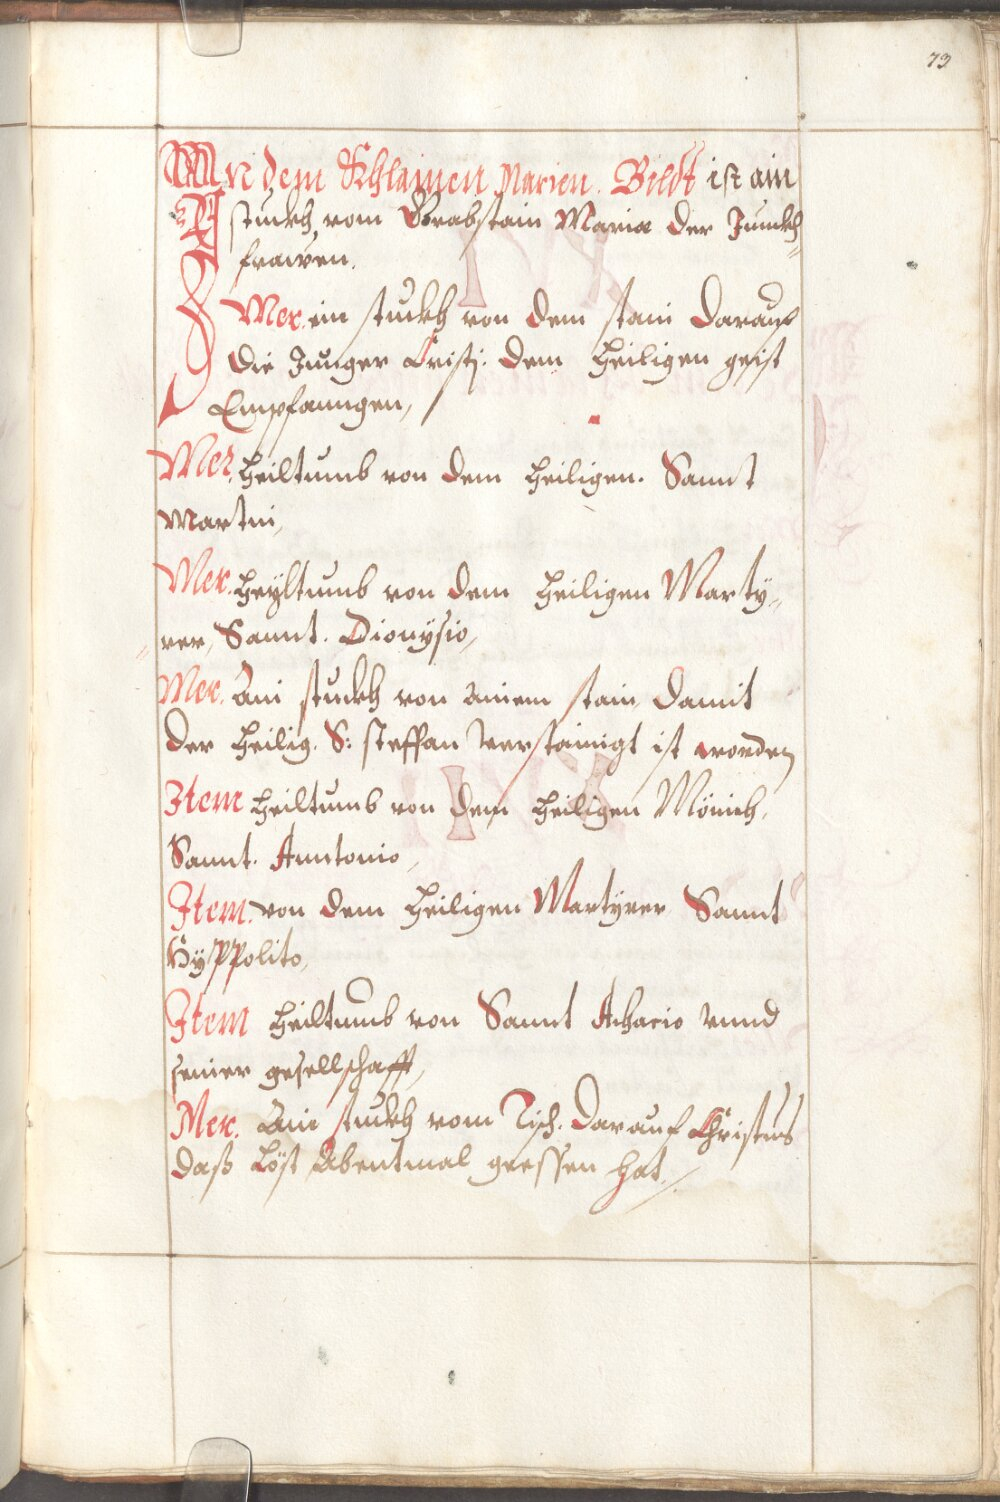 73
In dem Khlainen Marien. Bildt ist ain
stuckh, vom Grabstain Mariæ der Junckh=
frawen.
Mer. ein stuckh von dem stain darauf
die Junger Cristj: dem Heiligen geist
Empfanngen,
Mer. Heiltumb von dem Heiligen. Sannt
Martini,
Mer. Heyltumb von dem Heiligen Marty=
rer, Sannt. Dionÿsio,
Mer. Ain stuckh von ainem stain damit
der Heilig. S: steffan verstainigt ist worden
Item Heiltumb von dem Heiligen Mönich.
Sannt. Anntonio,
Item. von dem Heiligen Martÿrer Sannt
Hÿppolito,
Item Heiltumb von Sannt Achacio vnnd
seiner gesellschafft,
Mer. Ain stuckh vom Tisch. darauf Christus
daß Löst Abentmal geessen hat.